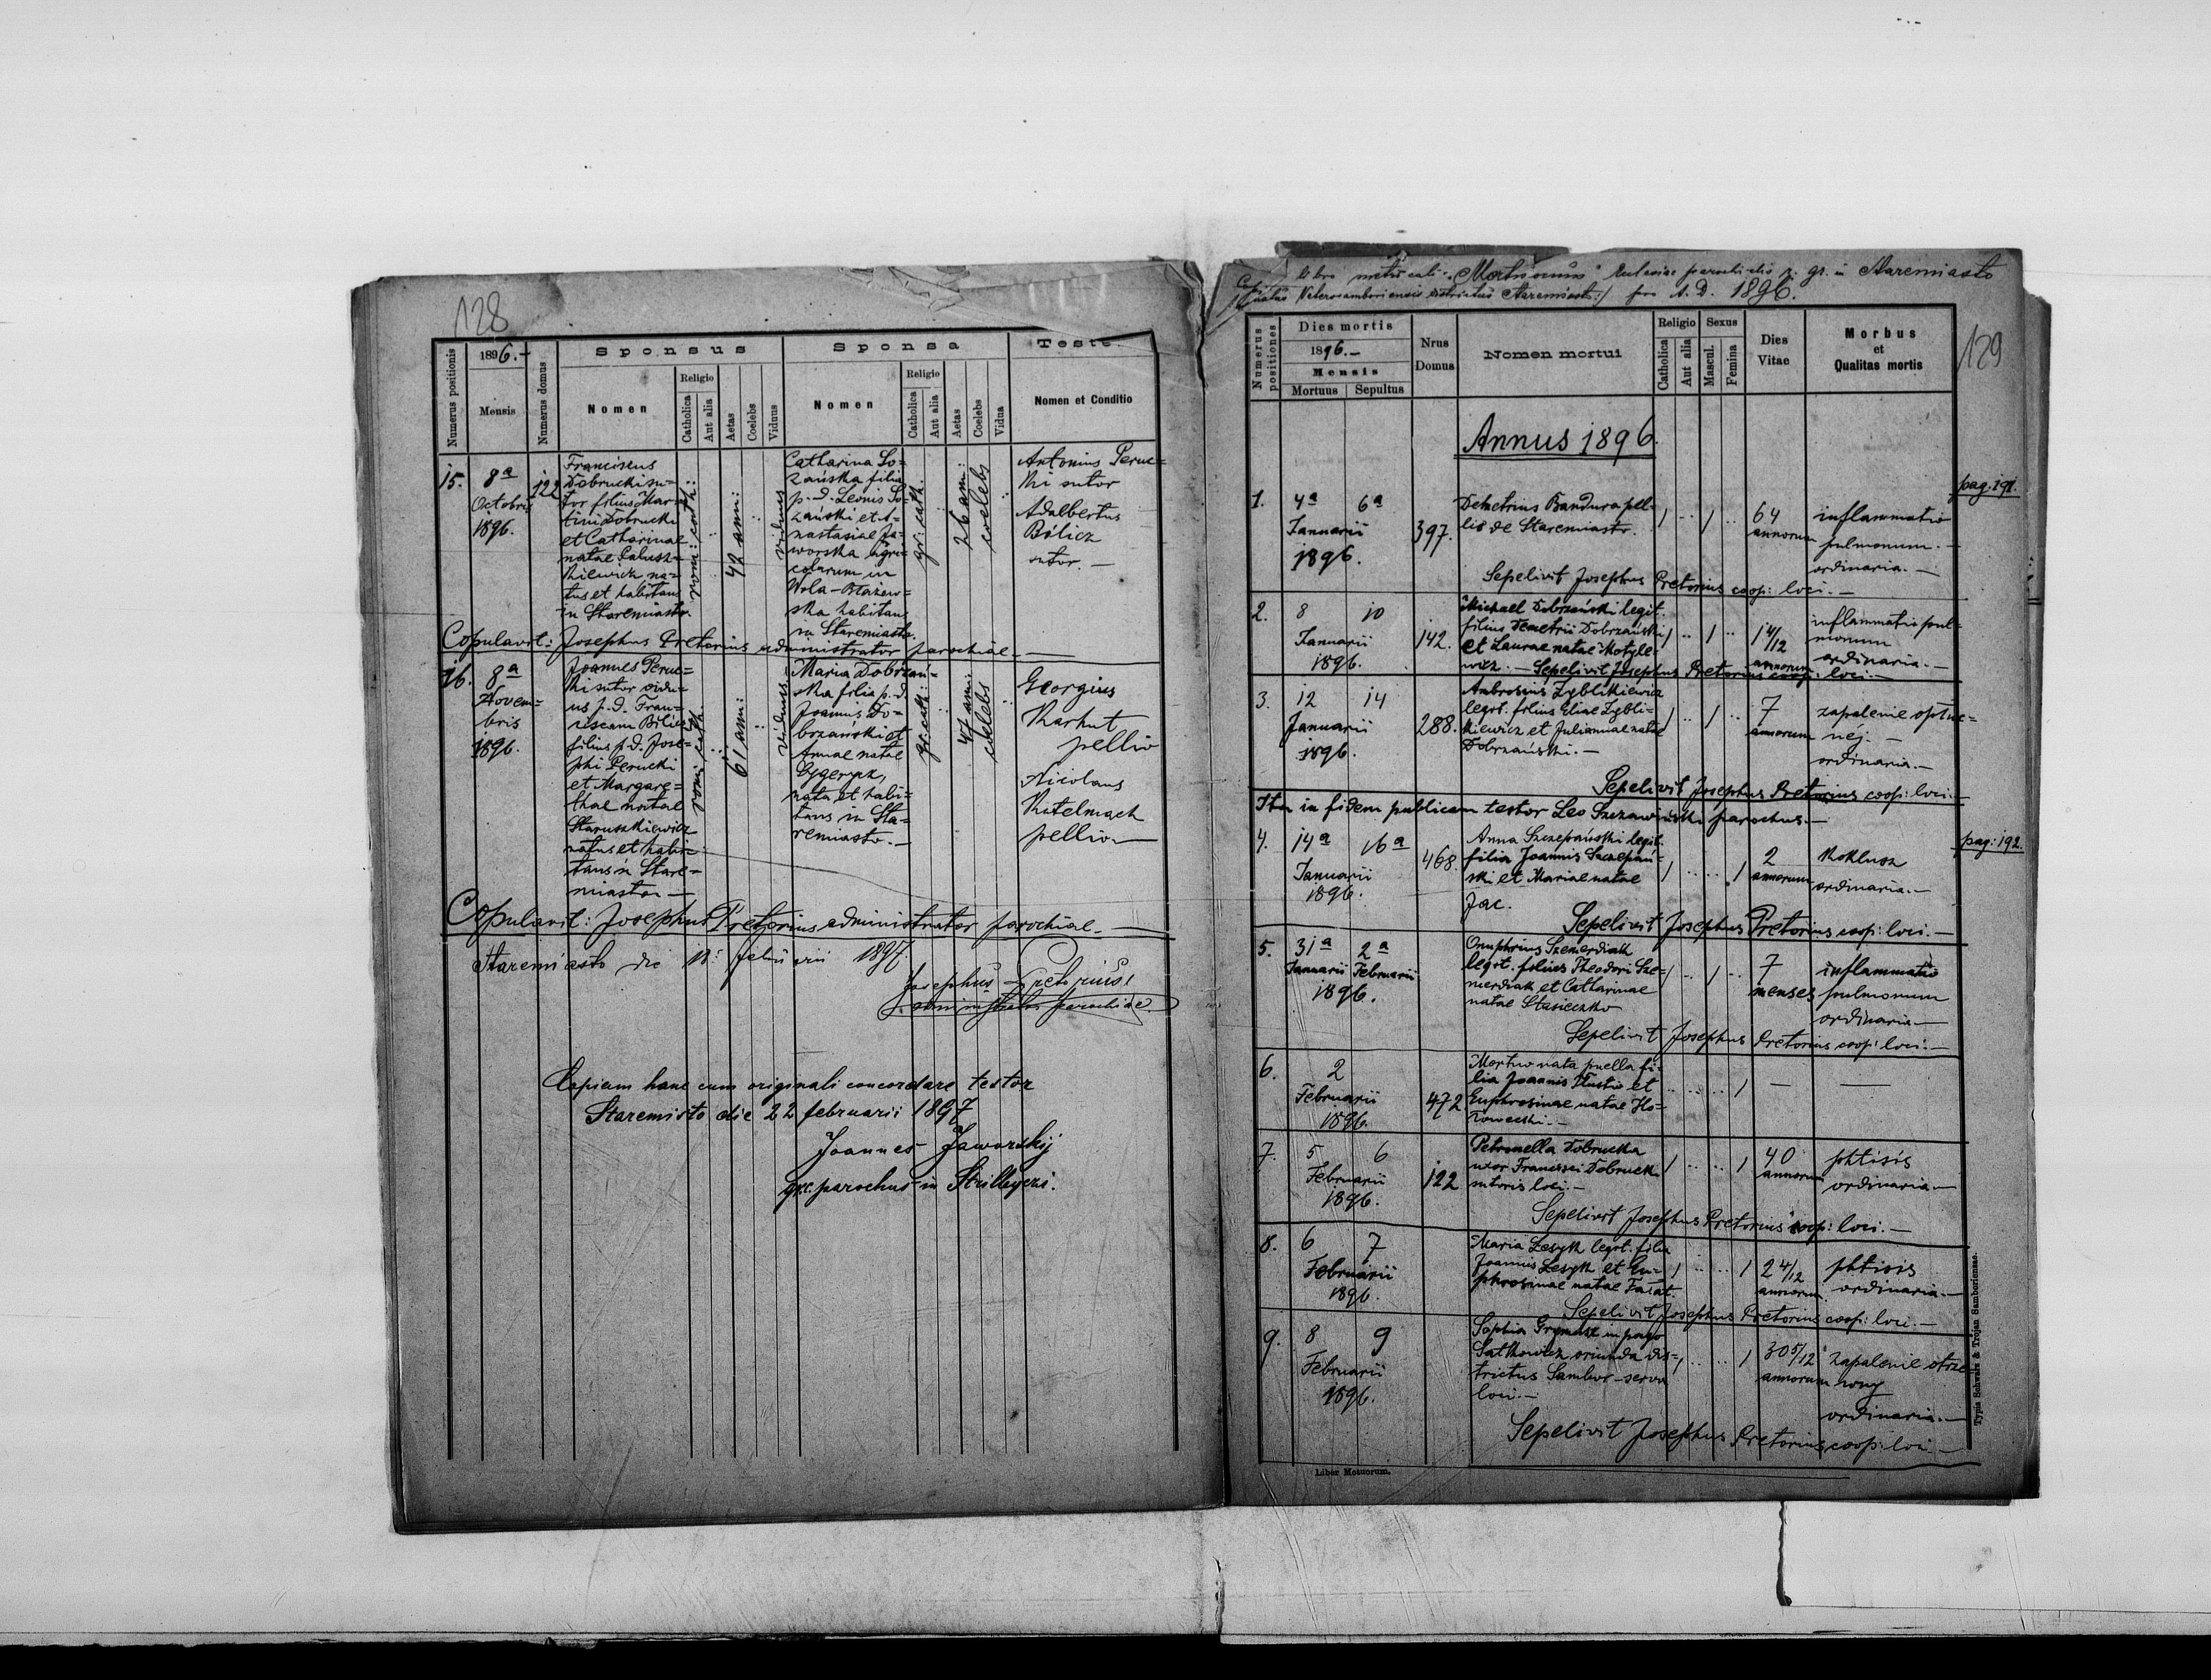 128
Numerus positionis
1896.-
Mensis
Numerus domus
Sponsus
Nomen
Religio
Catholica
Aut alia
Aetas
Coelebs
Viduus
Sponsa
Nomen
Religio
Catholica
Aut alia
Aetas
Coelebs
Vidua
Teste
Nomen et Conditio
15.
8ª
Octobris
1896.
122
Franciscus
Dobrucki su=
tor filius Mar=
tini Dobrucki
et Catharinae
natae
kiewicz na=
tus et habitans
in Staremiasto.
rom: cath:
42 ann:
viduus
Catharina So=
zańska filia
p. d. Leonis So=
zański et A=
nastasiae Ja=
worska agri=
colarum in
Wola-Błażew=
ska habitans
in Staremiasto.
gr. cath.
26 ann:
coelebs
Antonius Peruc=
ki sutor
Adalbertus
Bólicz
sutor.-
Copulavit: Josephus Pretorius administrator parochiae.-
16.
8ª
Novem=
bris
1896.
Joannes Peruc=
ki sutor vidu=
us p. d. Fran=
ciscam Bilicz
filius p. d. Jose=
phi Perucki
et Margare=
thae natae
Staruszkiewicz
natus et habi=
tans in Stare=
miasto.-
rom: cath.
61 ann:
viduus
Maria Dobrzań=
ska filia p. d.
Joannis Do=
brzański et
Annae natae
nata et habi=
tans in Sta=
remiasto.-
gr: cath:
47 ann:
coelebs
Georgius
Karhut
pellio
Nicolaus
Kutelmach
pellio-
Copulavit: Josephus Pretorius administrator parochiae.-
Staremiasto die 18 februarii 1897.
Josephus Pretorius
administrator parochiae.
Copiam hanc cum originali concordare testor
Staremisto die 22 februarii 1897
Joannes Jaworskij
gr.c. parochus in
libro metricali "Mortuorum" Ecclesiae parochialis r. gr. in Staremiasto
Veterosamboriensis districtus Staremiasto:/ pro A. D. 1896.
129
Numerus positiones
Dies mortis
1896.-
Mensis
Mortuus
Sepultus
Nrus
Domus
Nomen mortui
Religio
Catholica
Aut alia
Sexus
Mascul.
Femina
Dies
Vitae
Morbus
et
Qualitas mortis
Annus 1896.
pag. 191.
1.
4ª 6ª
Januarii
1896.
397.
Demetrius Bandura pel-
lio de Staremiasto.
1 .. 1
64
annorum
inflammatio
pulmonum.-
ordinaria.-
Sepelivit Josephus Pretorius coop: loci.-
2.
8 10
Januarii
1896.
142.
Michael Dobrzański legit.
filius Demetrii Dobrzański
et Laurae natae Motyle-
wicz.- Sepelivit Josephus Pretorius coop: loci.-
1 .. 1 ..
1 4/12
annorum
inflammatio pul=
monum
ordinaria.-
3.
12 14
Januarii
1896.
288.
Ambrosius Zyblikiewicz
legit. filius Eliae Zybli=
kiewicz et Juliannae natae
Dobrzański.-
1 .. 1 ..
7
annorum
zapalenie opłuc=
nej.-
ordinaria.-
Sepelivit Josephus Pretorius coop: loci.-
Ita in fidem publicam testor Leo Szczawiński parochus.-
pag: 192.
4.
14ª 16ª
Januarii
1896.
468.
Anna Szczepański legit.
filia Joannis Szczepań=
ski et Mariae natae
Jac.
1 .. .. 1
2
annorum
Koklusz
ordinaria.-
Sepelivit Josephus Pretorius coop: loci.-
5.
31ª 2ª
Januarii Februarii
1896.
Onuphrius Szemerdiak
legit. filius Theodori Sze=
merdiak et Catharinae
natae Stasieczko
1 .. 1 ..
7
menses
inflammatio
pulmonum
ordinaria-
Sepelivit Josephus Pretorius coop: loci.-
6.
2
Februarii
1896.
472
Mortuo nata puella fi=
lia Joannis et
Euphrosinae natae Ho=
łowecki.-
.. .. .. 1
— —
7.
5 6
Februarii
1896.
122
Petronella Dobrucka
uxor Francisci Dobrucki
sutoris loci.-
1 .. .. 1
40
annorum
phtisis
ordinaria.-
Sepelivit Josephus Pretorius coop: loci.-
8.
6 7
Februarii
1896.
Maria Lesyk legit. filia
Joannis Lesyk et Eu=
phrosinae natae
1 .. .. 1
2 4/12
annorum.
phtisis
ordinaria.-
Sepelivit Josephus Pretorius coop: loci.-
9.
8 9
Februarii
1896.
Sophia in pago
Satkowicz oriunda dis=
trictus Sambor-serva
loci.-
1 .. .. 1
30 5/12
annorum
zapalenie otrze=
wny
ordinaria.-
Sepelivit Josephus Pretorius coop: loci.-
Liber Motuorum.
Typis Schwarz & Trojan Samboriensae.